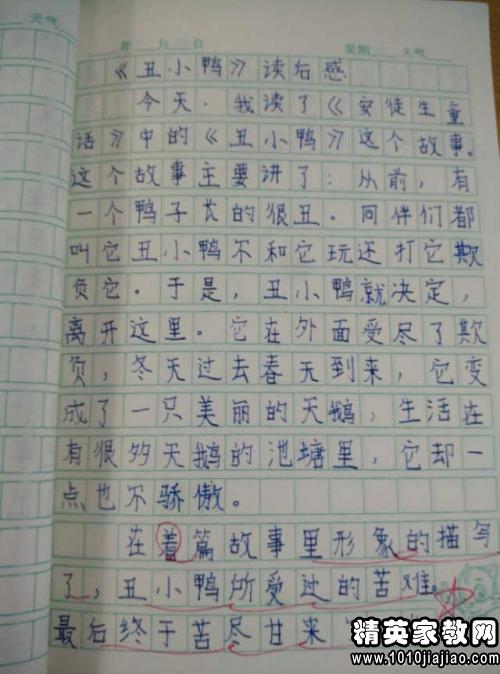 天气 年 月 日 星期 天气
《丑小鸭》读后感
今天.我读了《安徒生童
话》中的《丑小鸭》这个故事。
这个故事主要讲了：从前，有
一个鸭子长的很丑。同伴们都
叫它丑小鸭不和它玩还打它欺
负它。于是，丑小鸭就决定，
离开这里。它在外面受尽了欺
负，冬天过去春天到来，它变
成了一只美丽的天鹅，生活在
有很多天鹅的池塘里，它却一
点也不骄傲。
在着篇故事里形象的描写
了，丑小鸭所受过的苦难。
最后终于苦尽甘来
精英家教网
www.1010jiajiao.com